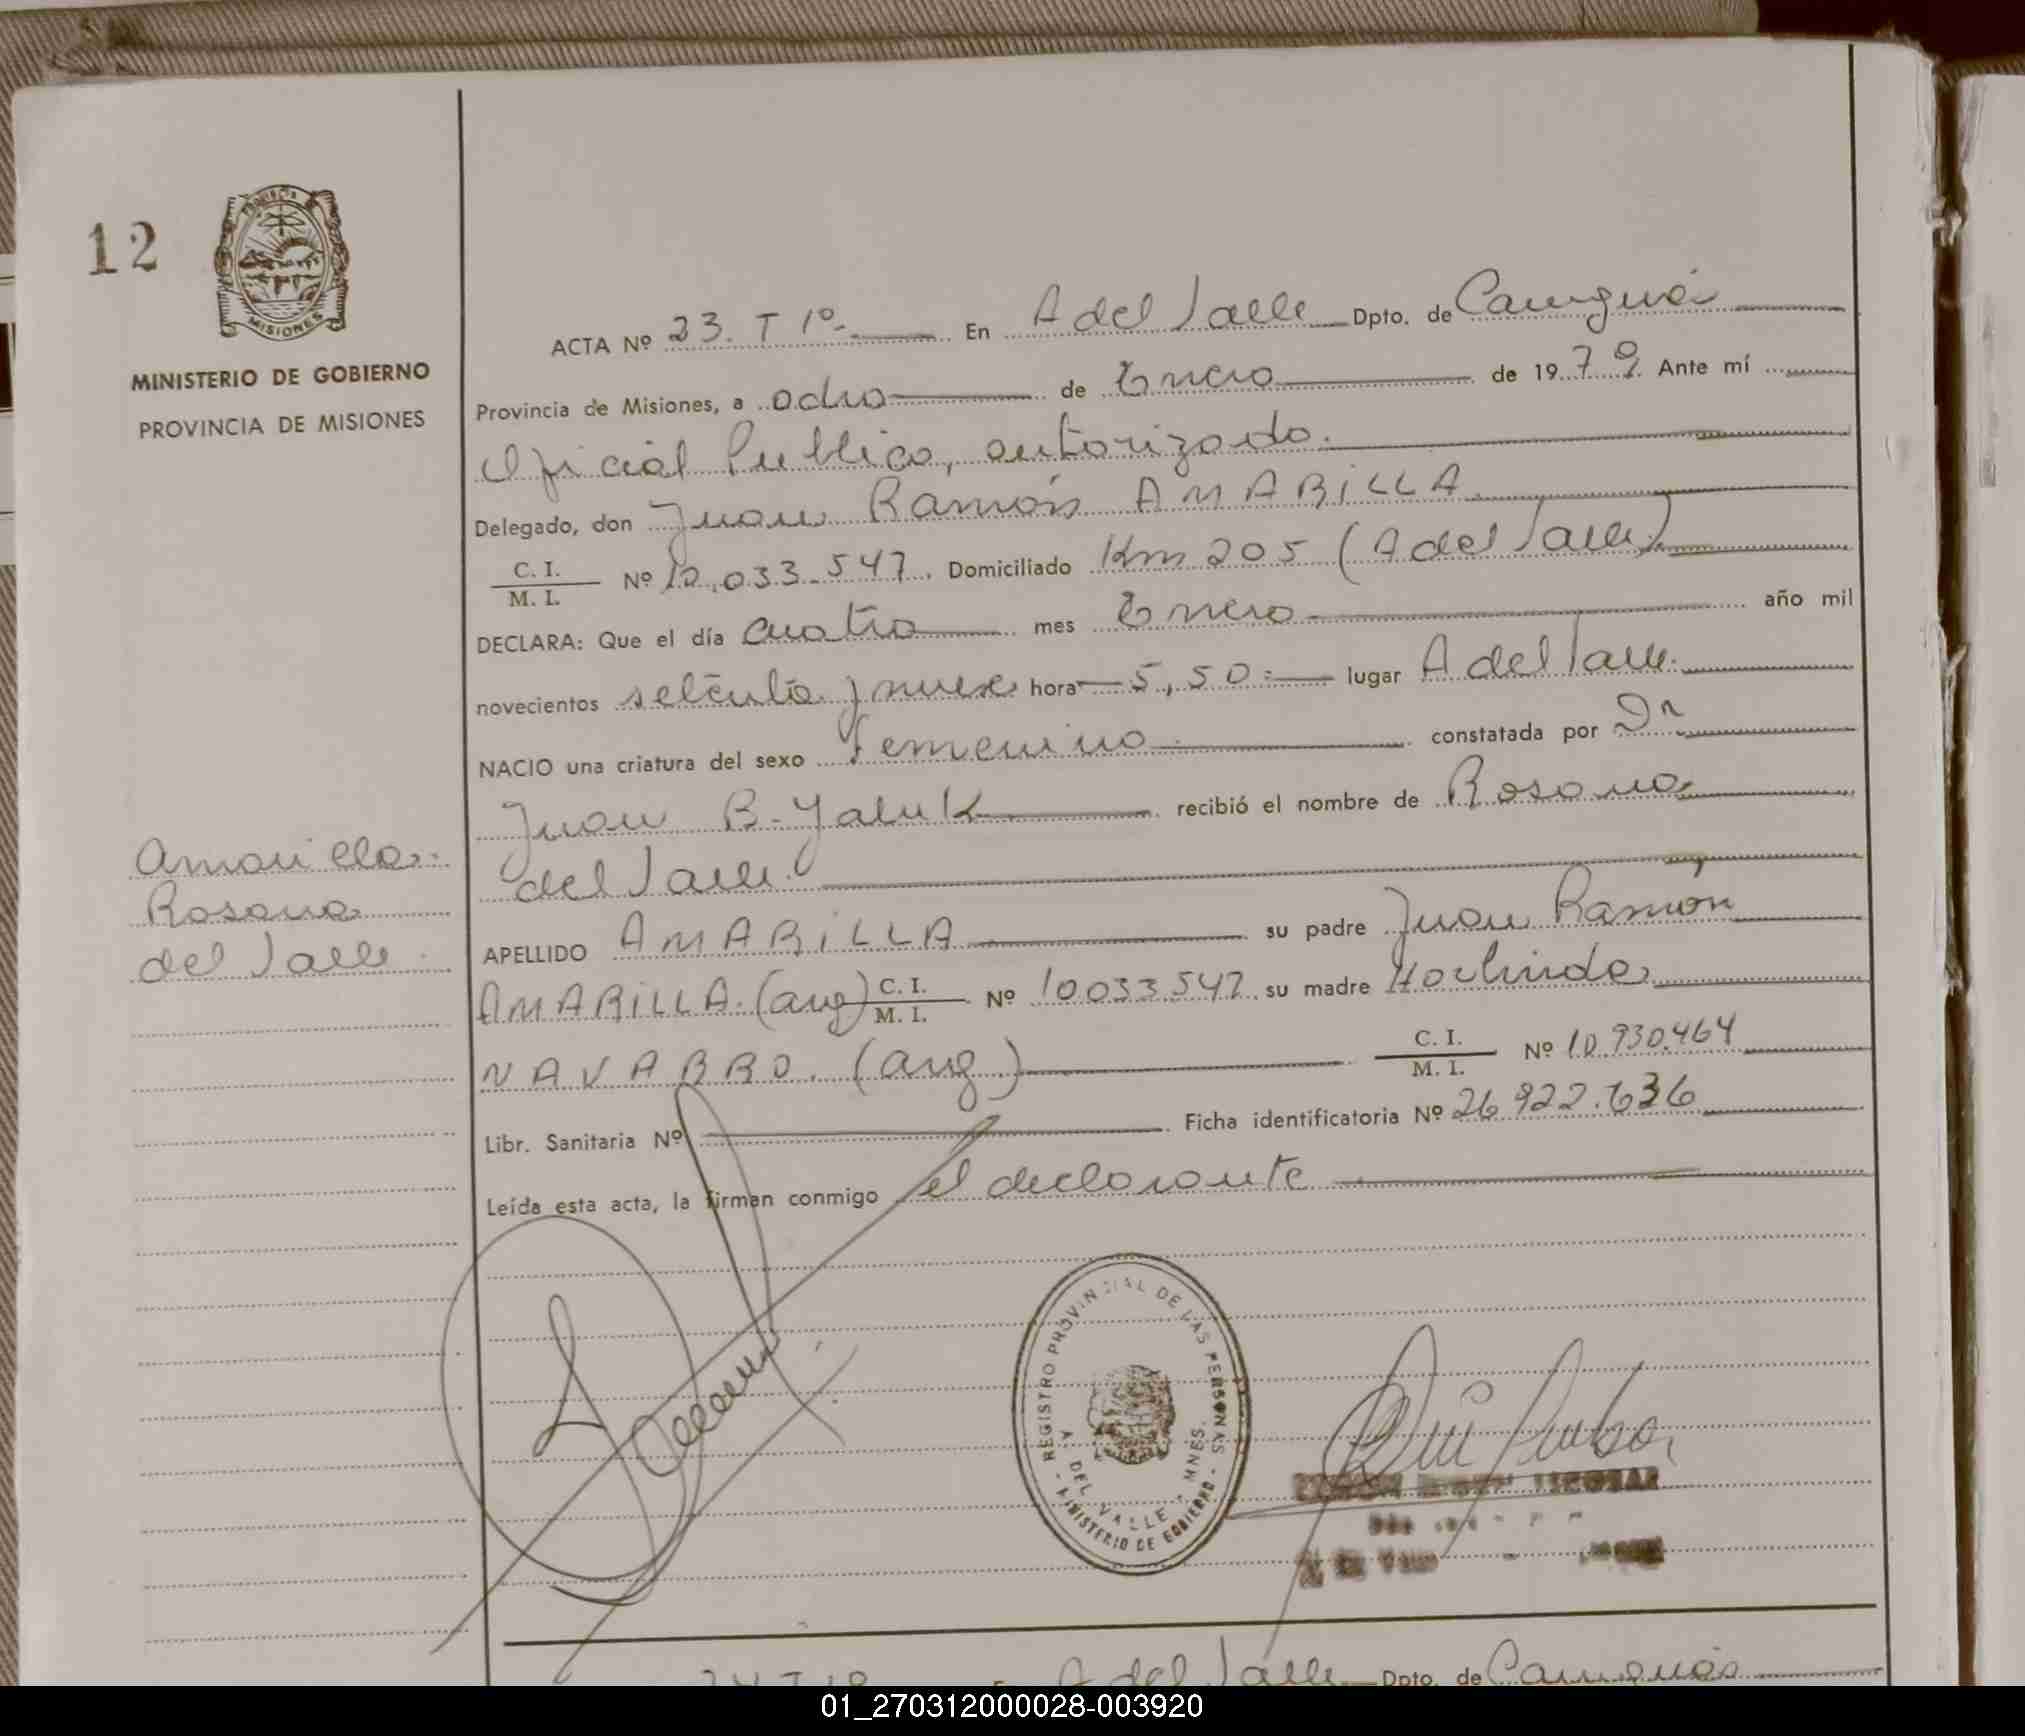 12
MISIONES
MINISTERIO DE GOBIERNO
PROVINCIA DE MISIONES
Amarilla
Rosana
del Valle
ACTA Nº 23. T 1º.- En A del Valle Dpto. de Cainguás
Provincia de Misiones, a ocho de Enero de 1979 Ante mí
Oficial Publico, autorizado.
Delegado, don Juan Ramón AMARILLA
C. I.
M. I. Nº 10.033.547. Domiciliado Km 205 (A del Valle)
DECLARA: Que el día cuatro mes Enero año mil
novecientos setenta y nueve hora 5,50 lugar A del Valle
NACIO una criatura del sexo femenino constatada por Dr
Juan B. Yaluk recibió el nombre de Rosana
del Valle
APELLIDO AMARILLA su padre Juan Ramón
AMARILLA (arg) C. I.
M. I. Nº 10033.547 su madre
NAVARRO. (arg) C. I.
M. I. Nº 10.930.464
Libr. Sanitaria Nº Ficha identificatoria Nº 26.922.636
Leída esta acta, la firman conmigo el declarante
REGISTRO PROVINCIAL DE LAS PERSONAS
A DEL VALLE - MNES.
MINISTERIO DE GOBIERNO
ESCOBAR
A del Valle Dpto. de Cainguás
01_270312000028-003920